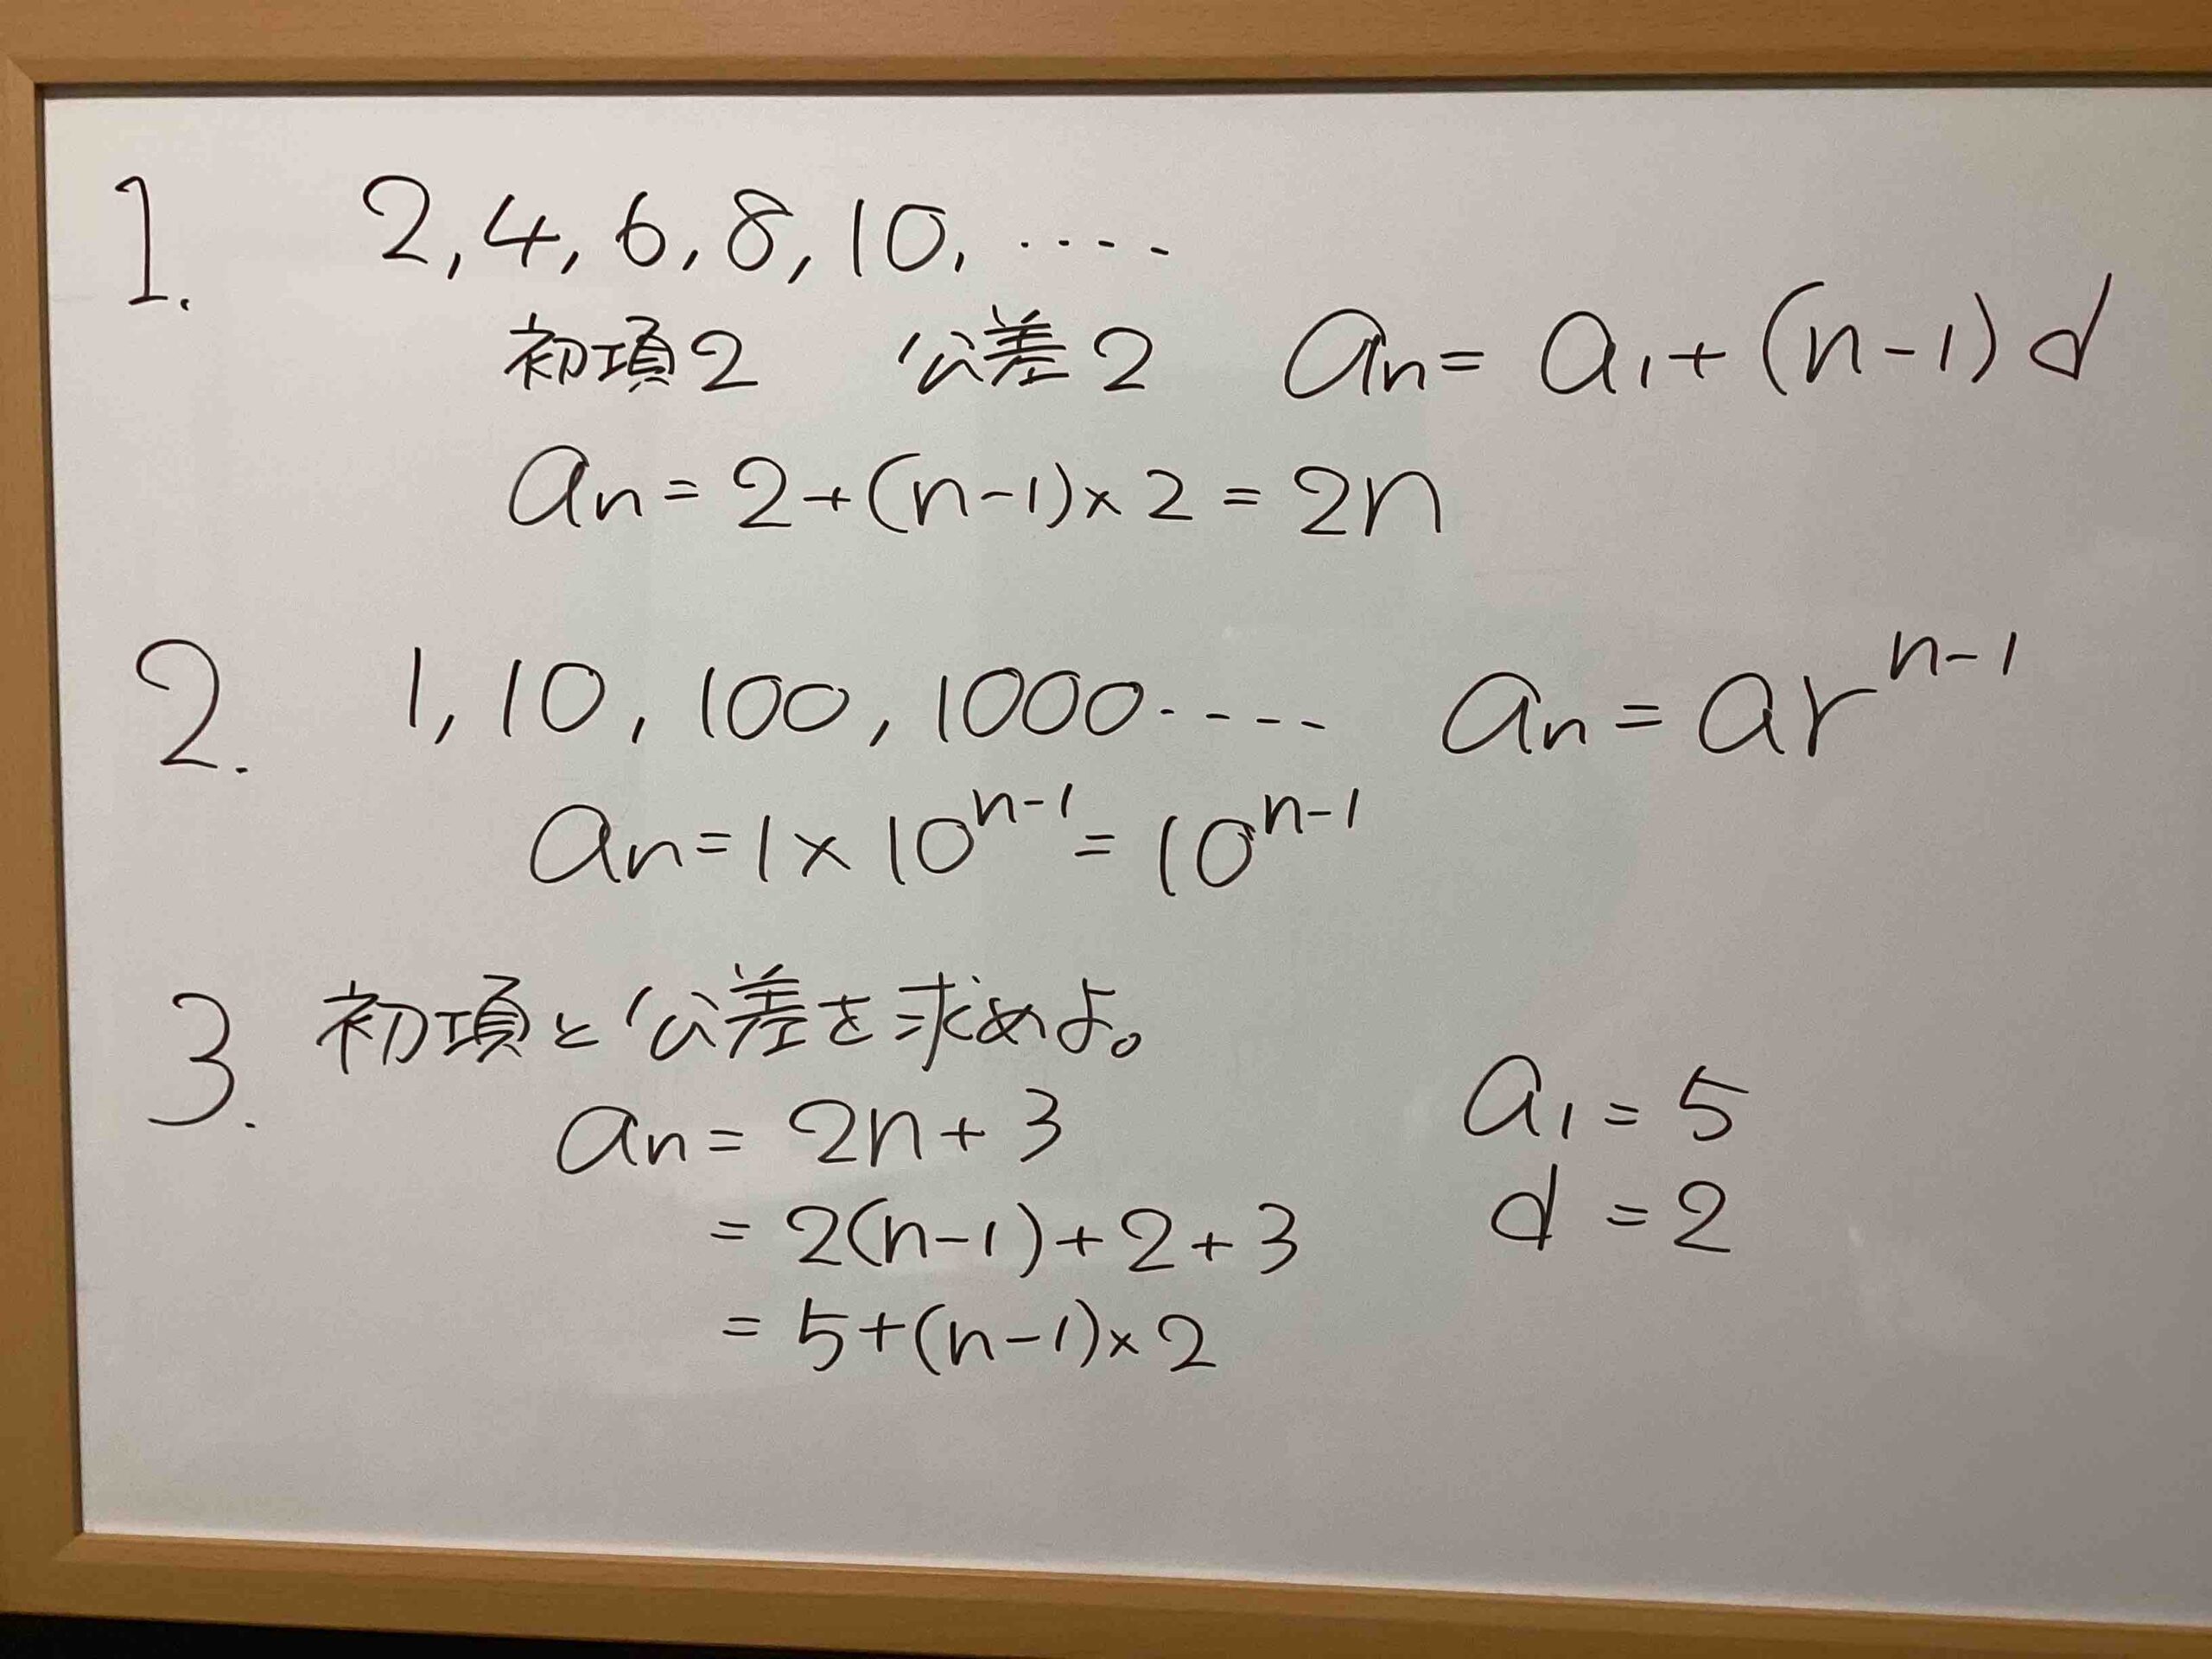 1. 2, 4, 6, 8, 10, ‥‥
初項2 公差2 an = a₁ + (n-1)d
an = 2+(n-1)×2 = 2n
2. 1, 10, 100, 1000 ‥‥ an = arⁿ⁻¹
an = 1×10ⁿ⁻¹ = 10ⁿ⁻¹
3. 初項と公差を求めよ。
an = 2n+3
= 2(n-1)+2+3
= 5+(n-1)×2
a₁ = 5
d = 2